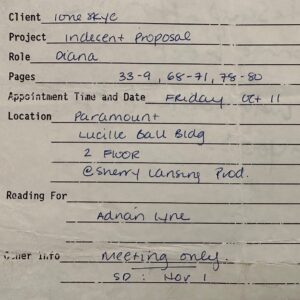 Client Ione Skye
Project Indecent Proposal
Role Diana
Pages 33-9, 68-71, 78-80
Appointment Time and Date Friday Oct 11
Location Paramount
Lucille Ball Bldg
2 Floor
@Sherry Lansing Prod.
Reading For
Adrian Lyne
Other Info Meeting only.
SD: Nov 1